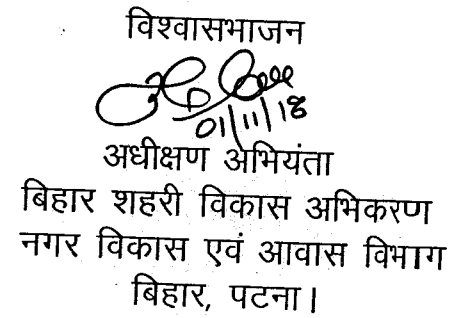 विश्वासभाजन
01/11/18
अधीक्षण अभियंता
बिहार शहरी विकास अभिकरण
नगर विकास एवं आवास विभाग
बिहार, पटना।